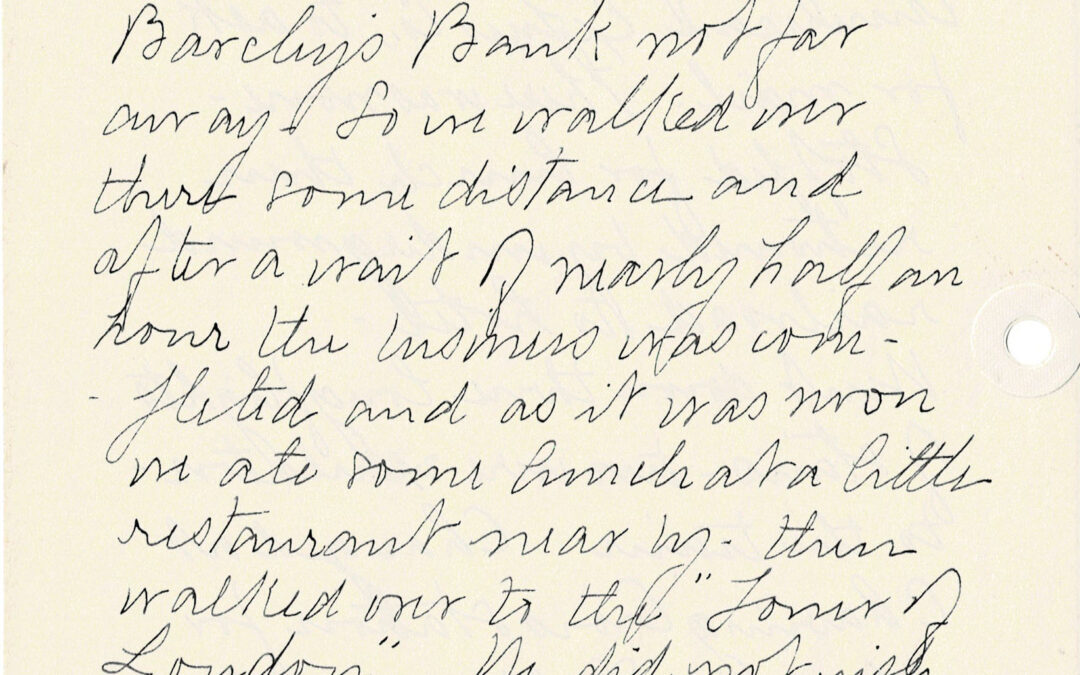 Barclays Bank not far
away. So we walked over
there some distance and
after a wait of nearly half an
hour the business was com-
- pleted and as it was noon
we ate some lunch at a little
restaurant near by - then
walked over to the "Tower of
London". We did not wish